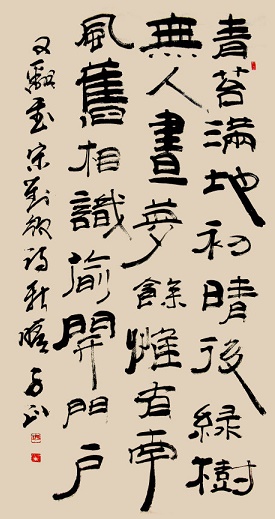 青苔滿地初晴後綠樹
無人晝夢餘惟有南
風舊相識偷開門戶
又翻書宋劉攽詩新晴